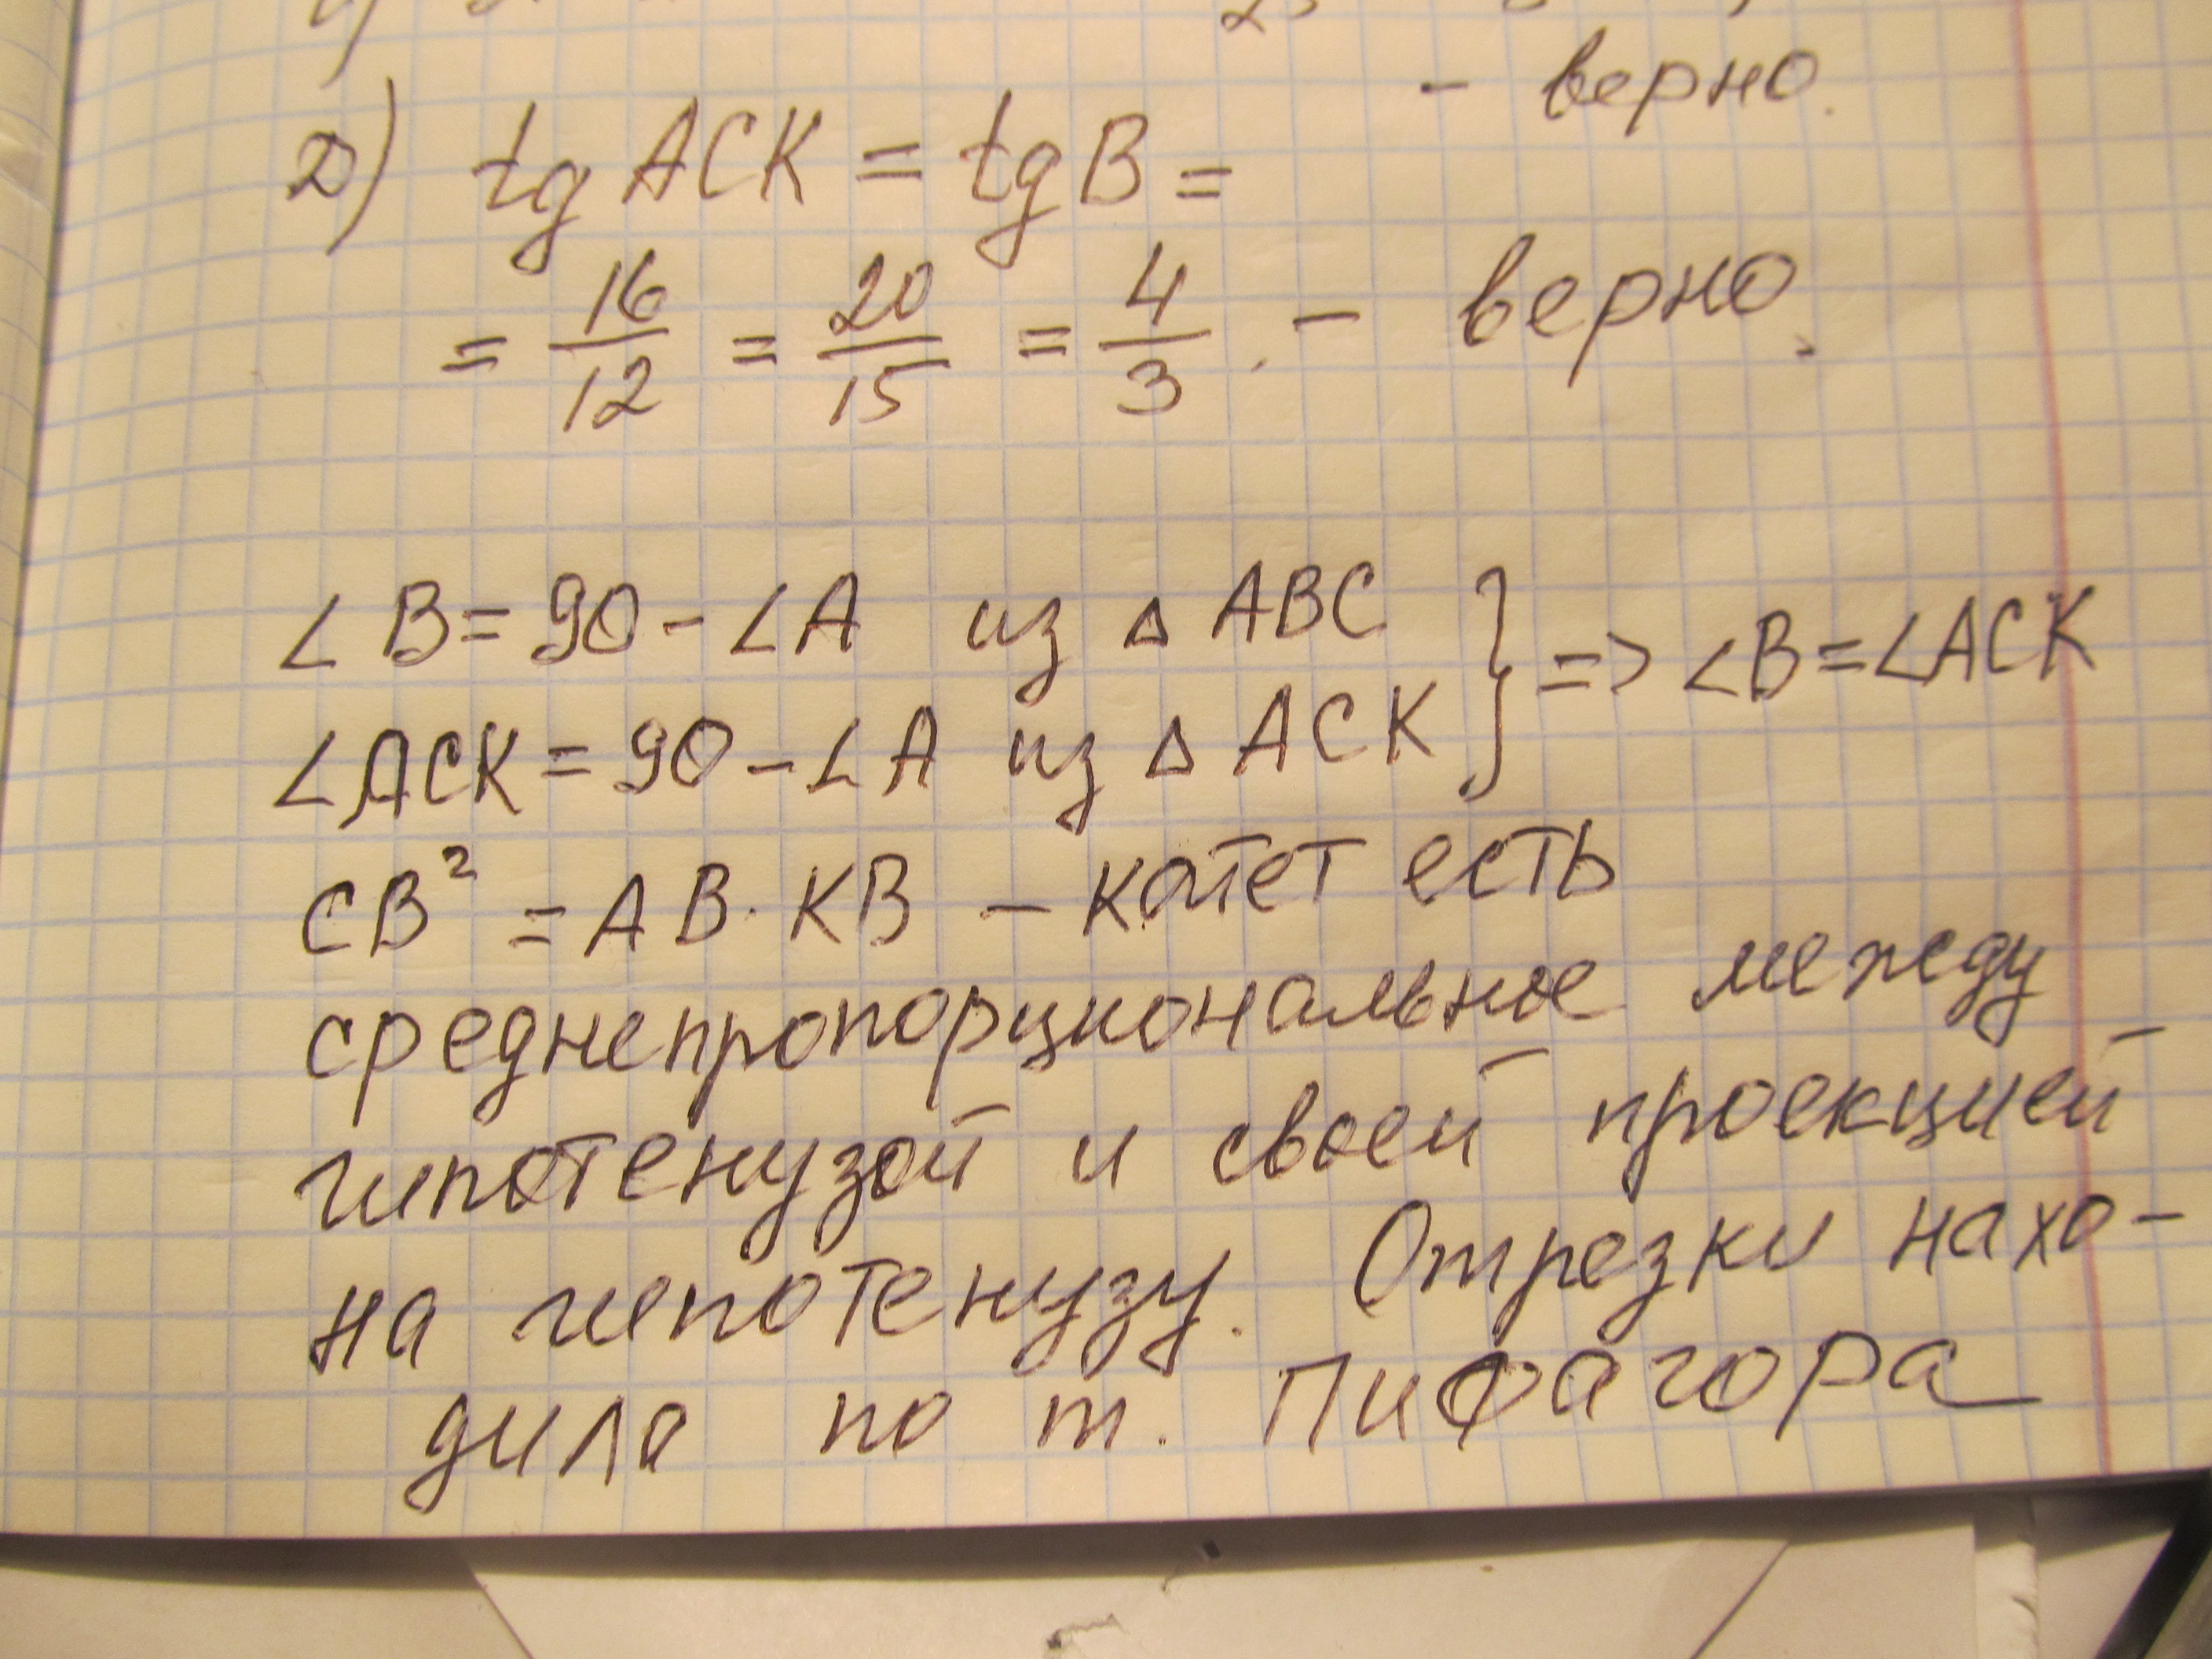 - верно.
2) tg ACK = tg B =
= 16/12 = 20/15 = 4/3. - верно.
∠B = 90 - ∠A из △ ABC } => ∠B = ∠ACK
∠ACK = 90 - ∠A из △ ACK
CB² = AB · KB - катет есть
среднепропорциональное между
гипотенузой и своей проекцией
на гипотенузу. Отрезки нахо-
дила по т. Пифагора